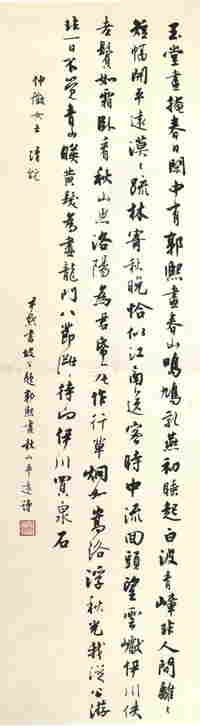 玉堂晝掩春日閑中有郭熙畫春山鳴鳩乳燕初睡起白波青嶂非人間離〻
短幅開平遠漠〻疏林寄秋晚恰似江南送客時中流回頭望雲巘伊川佚
老鬢如霜臥看秋山思洛陽為君紙尾作行草炯如嵩洛浮秋光我從公游
如一日不覺青山映黃髮為畫龍門八節灘待向伊川買泉石
女士 清玩
書坡公題郭熙畫秋山平遠詩